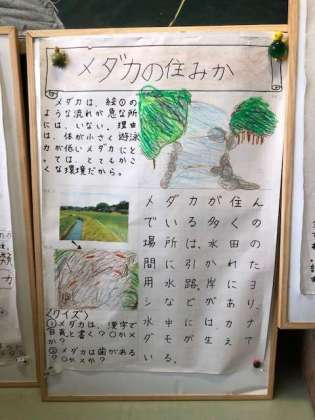 メダカの住みか
メダカは、絵①の
ような流れが急な所
には、いない。理由
は、体が小さく遊泳
力が低いメダカにと
っては、とてもかこ
くな環境だから。
メダカが住ん
でいる多くの
場所は、水田の
間に引かれた
用水路。岸にヨ
シなどがあり、
水中にはカナ
ダモが生えて
いる。
〈クイズ〉
①メダカは、漢字で
目高と書く？〇か×
か？
②メダカは歯がある
？〇か×か？